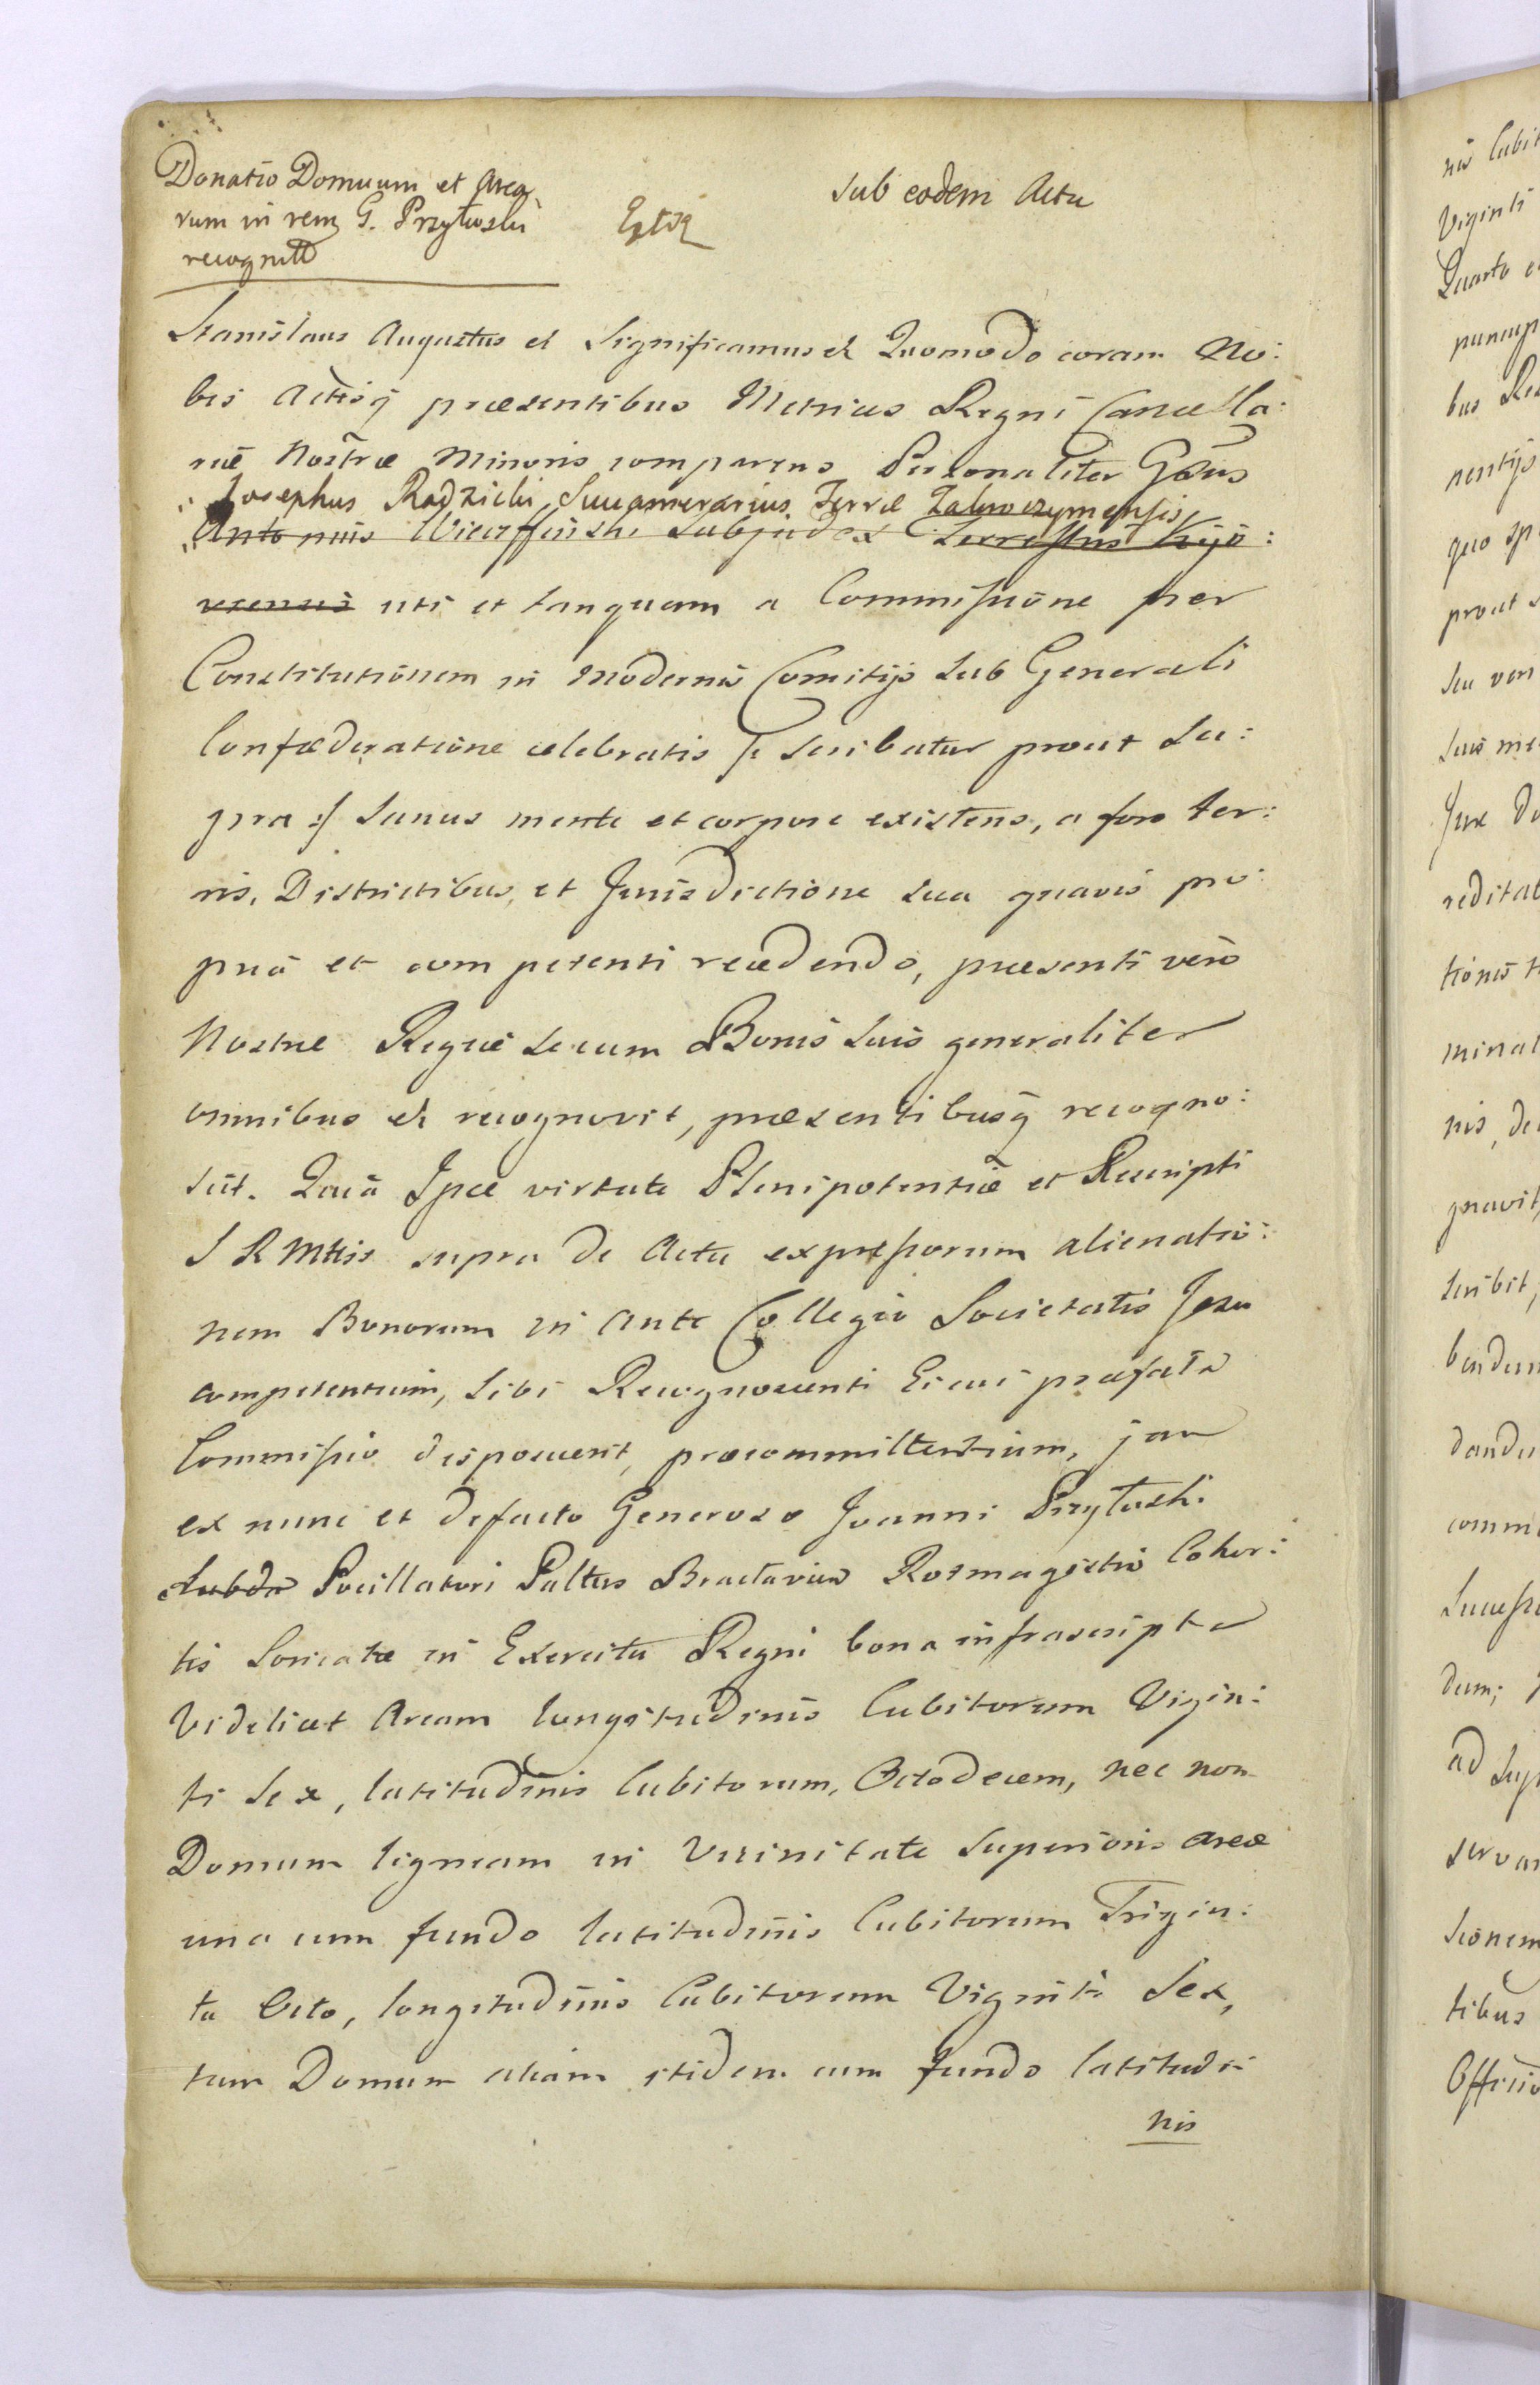 Donatio Domuum et Area
rum in rem G. Przyłuski
recognitt
Sub eodem Actu
Stanislaus Augustus et Significamus et Quomodo coram No:
bis Actisq̃ præsentibus Metrices Regni Cancella:
riæ Nostræ Minoris comparens Personaliter Gñsus
Josephus Radzicki Succamerarius Terræ Zakroczymensis
Antonius Subjudex Terrestris Kijo:
viensis uti et tanquam a Commissione per
Constitutionem in modernis Comitijs Sub Generali
Confæderatione celebratis /: Scribatur prout Su:
pra :/ Sanus mente et corpore existens, a foro ter:
ris, Districtibus, et Jurisdictione sua quavis pro:
pria et competenti recedendo, præsenti vero
Nostræ Regiæ secum Bonis Suis generaliter
omnibus et recognovit, præsentibusq̃ recogno:
scit. Quia Ipse virtute Plenipotentiæ et Rescripti
S R Mttis supra de Actu expressorum alienatio:
nem Bonorum in Ante Collegio Societatis Jesu
competentium, Sibi Recognoscenti Eicui præfata
Commissio disposuerit, præcommittentium, jam
ex nunc et defacto Generoso Joanni Przyłuski
Subda Pocillatori Palttus Bractaviens Rotmagistro Cohor:
tis Loricatæ in Exercitu Regni bona infrascripta
Videlicet Aream longitudinis Cubitorum Vigin:
ti Sex, latitudinis Cubitorum, Octodecem, nec non
Domum ligneam in Vicinitate Superioris areæ
una cum fundo latitudinis Cubitorum Trigin:
ta Octo, longitudinis Cubitorum Viginti Sex,
tum Domum aliam itidem cum fundo latitudi
nis